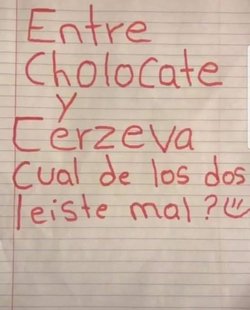 Entre
Cholocate
y
Cerzeva
Cual de los dos
leiste mal?